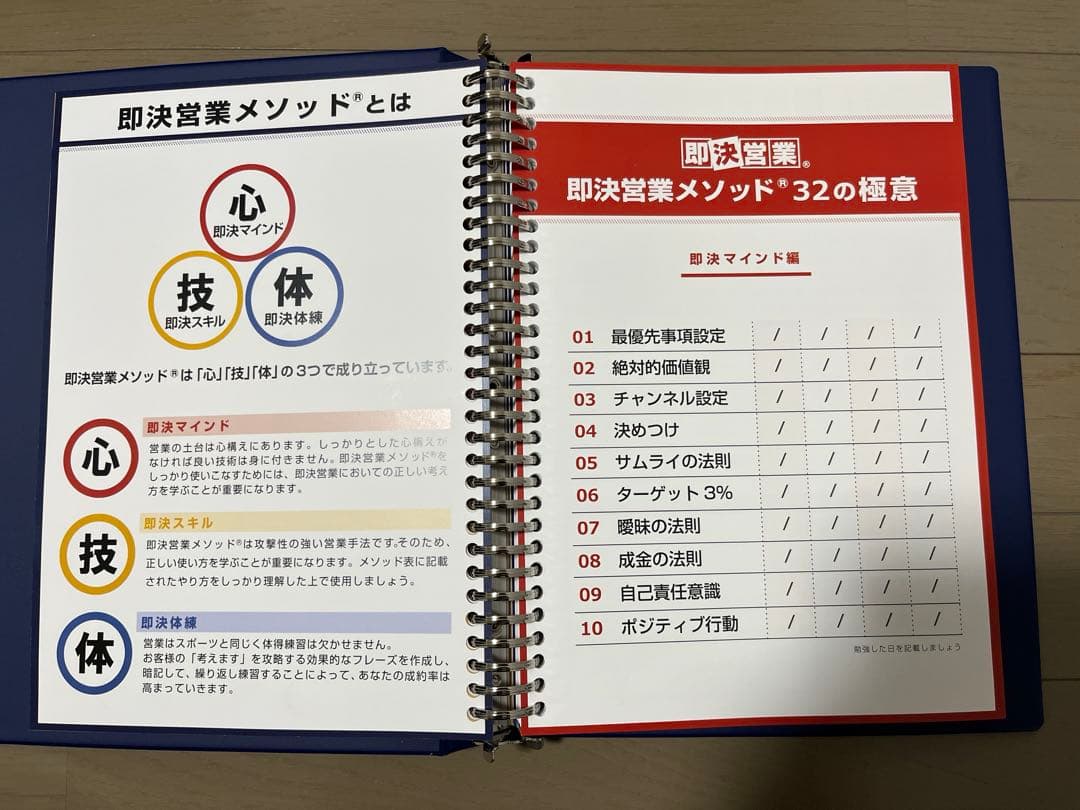 即決営業メソッド®とは
心
即決マインド
技
即決スキル
体
即決体練
即決営業メソッド®は「心」「技」「体」の3つで成り立っています。
心
即決マインド
営業の土台は心構えにあります。しっかりとした心構えが
なければ良い技術は身に付きません。即決営業メソッド®を
しっかり使いこなすためには、即決営業においての正しい考え
方を学ぶことが重要になります。
技
即決スキル
即決営業メソッド®は攻撃性の強い営業手法です。そのため、
正しい使い方を学ぶことが重要になります。メソッド表に記載
されたやり方をしっかり理解した上で使用しましょう。
体
即決体練
営業はスポーツと同じく体得練習は欠かせません。
お客様の「考えます」を攻略する効果的なフレーズを作成し、
暗記して、繰り返し練習することによって、あなたの成約率は
高まっていきます。
即決営業®
即決営業メソッド®32の極意
即決マインド編
01 最優先事項設定 / / / /
02 絶対的価値観 / / / /
03 チャンネル設定 / / / /
04 決めつけ / / / /
05 サムライの法則 / / / /
06 ターゲット3% / / / /
07 曖昧の法則 / / / /
08 成金の法則 / / / /
09 自己責任意識 / / / /
10 ポジティブ行動 / / / /
勉強した日を記載しましょう